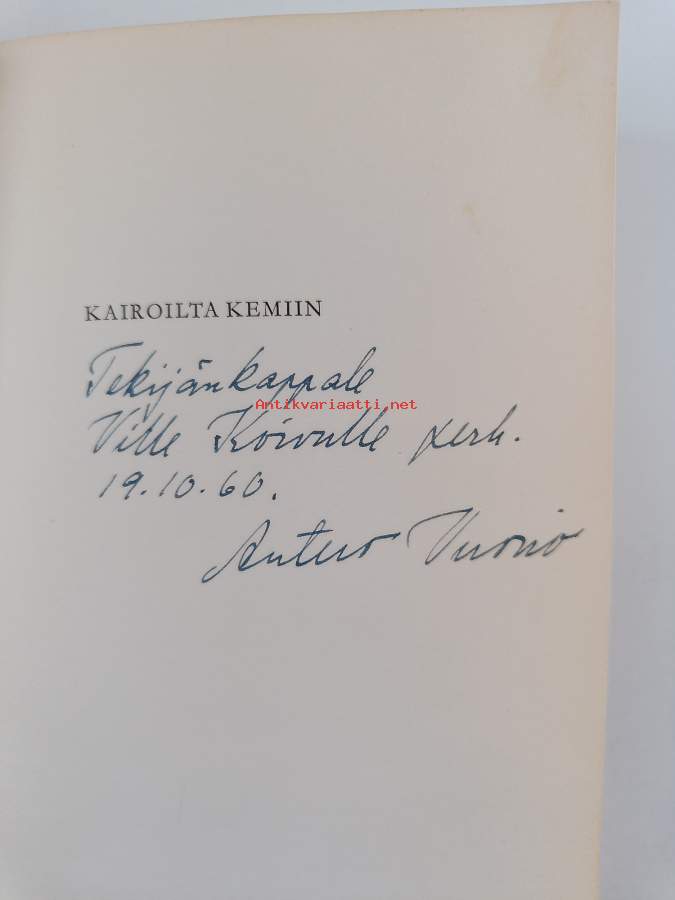 KAIROILTA KEMIIN
Tekijänkappale
Antikvariaatti.net
Ville Koivulle perh.
19.10.60.
Antero Vuorio